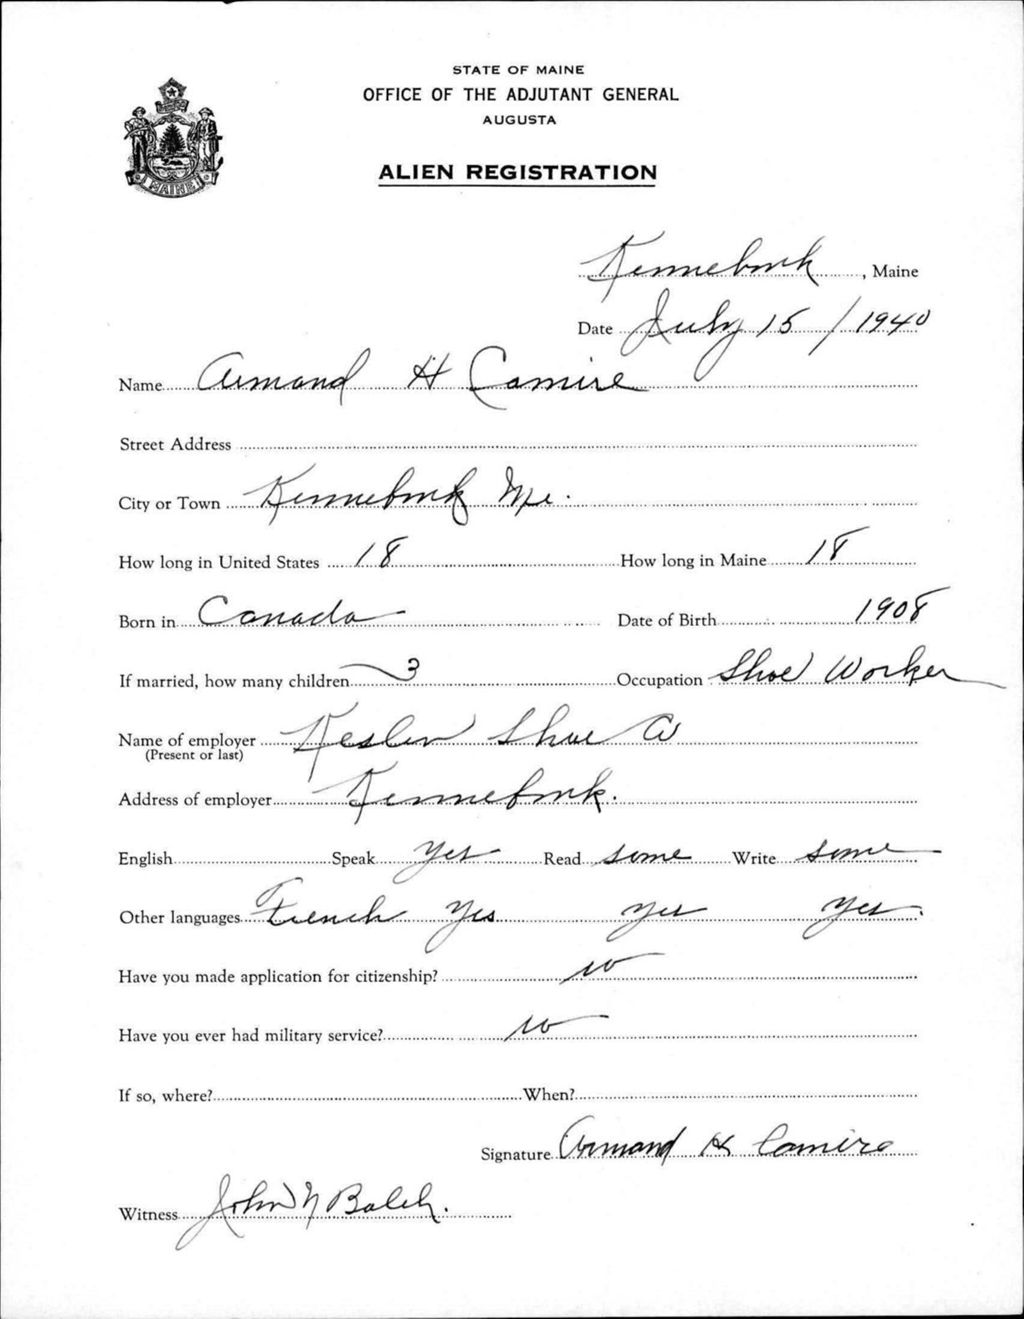 STATE OF MAINE
OFFICE OF THE ADJUTANT GENERAL
AUGUSTA
ALIEN REGISTRATION
MAINE
Kennebunk, Maine
Date July 15 / 1940
Name Armand H Camire
Street Address
City or Town Kennebunk Me.
How long in United States 18 How long in Maine 18
Born in Canada Date of Birth 1908
If married, how many children 3 Occupation Shoe Worker
Name of employer Kesslen Shoe Co
(Present or last)
Address of employer Kennebunk.
English Speak Yes Read some Write some
Other languages French Yes Yes Yes.
Have you made application for citizenship? no
Have you ever had military service? no
If so, where? When?
Signature Armand H Camire
Witness John N Balch.